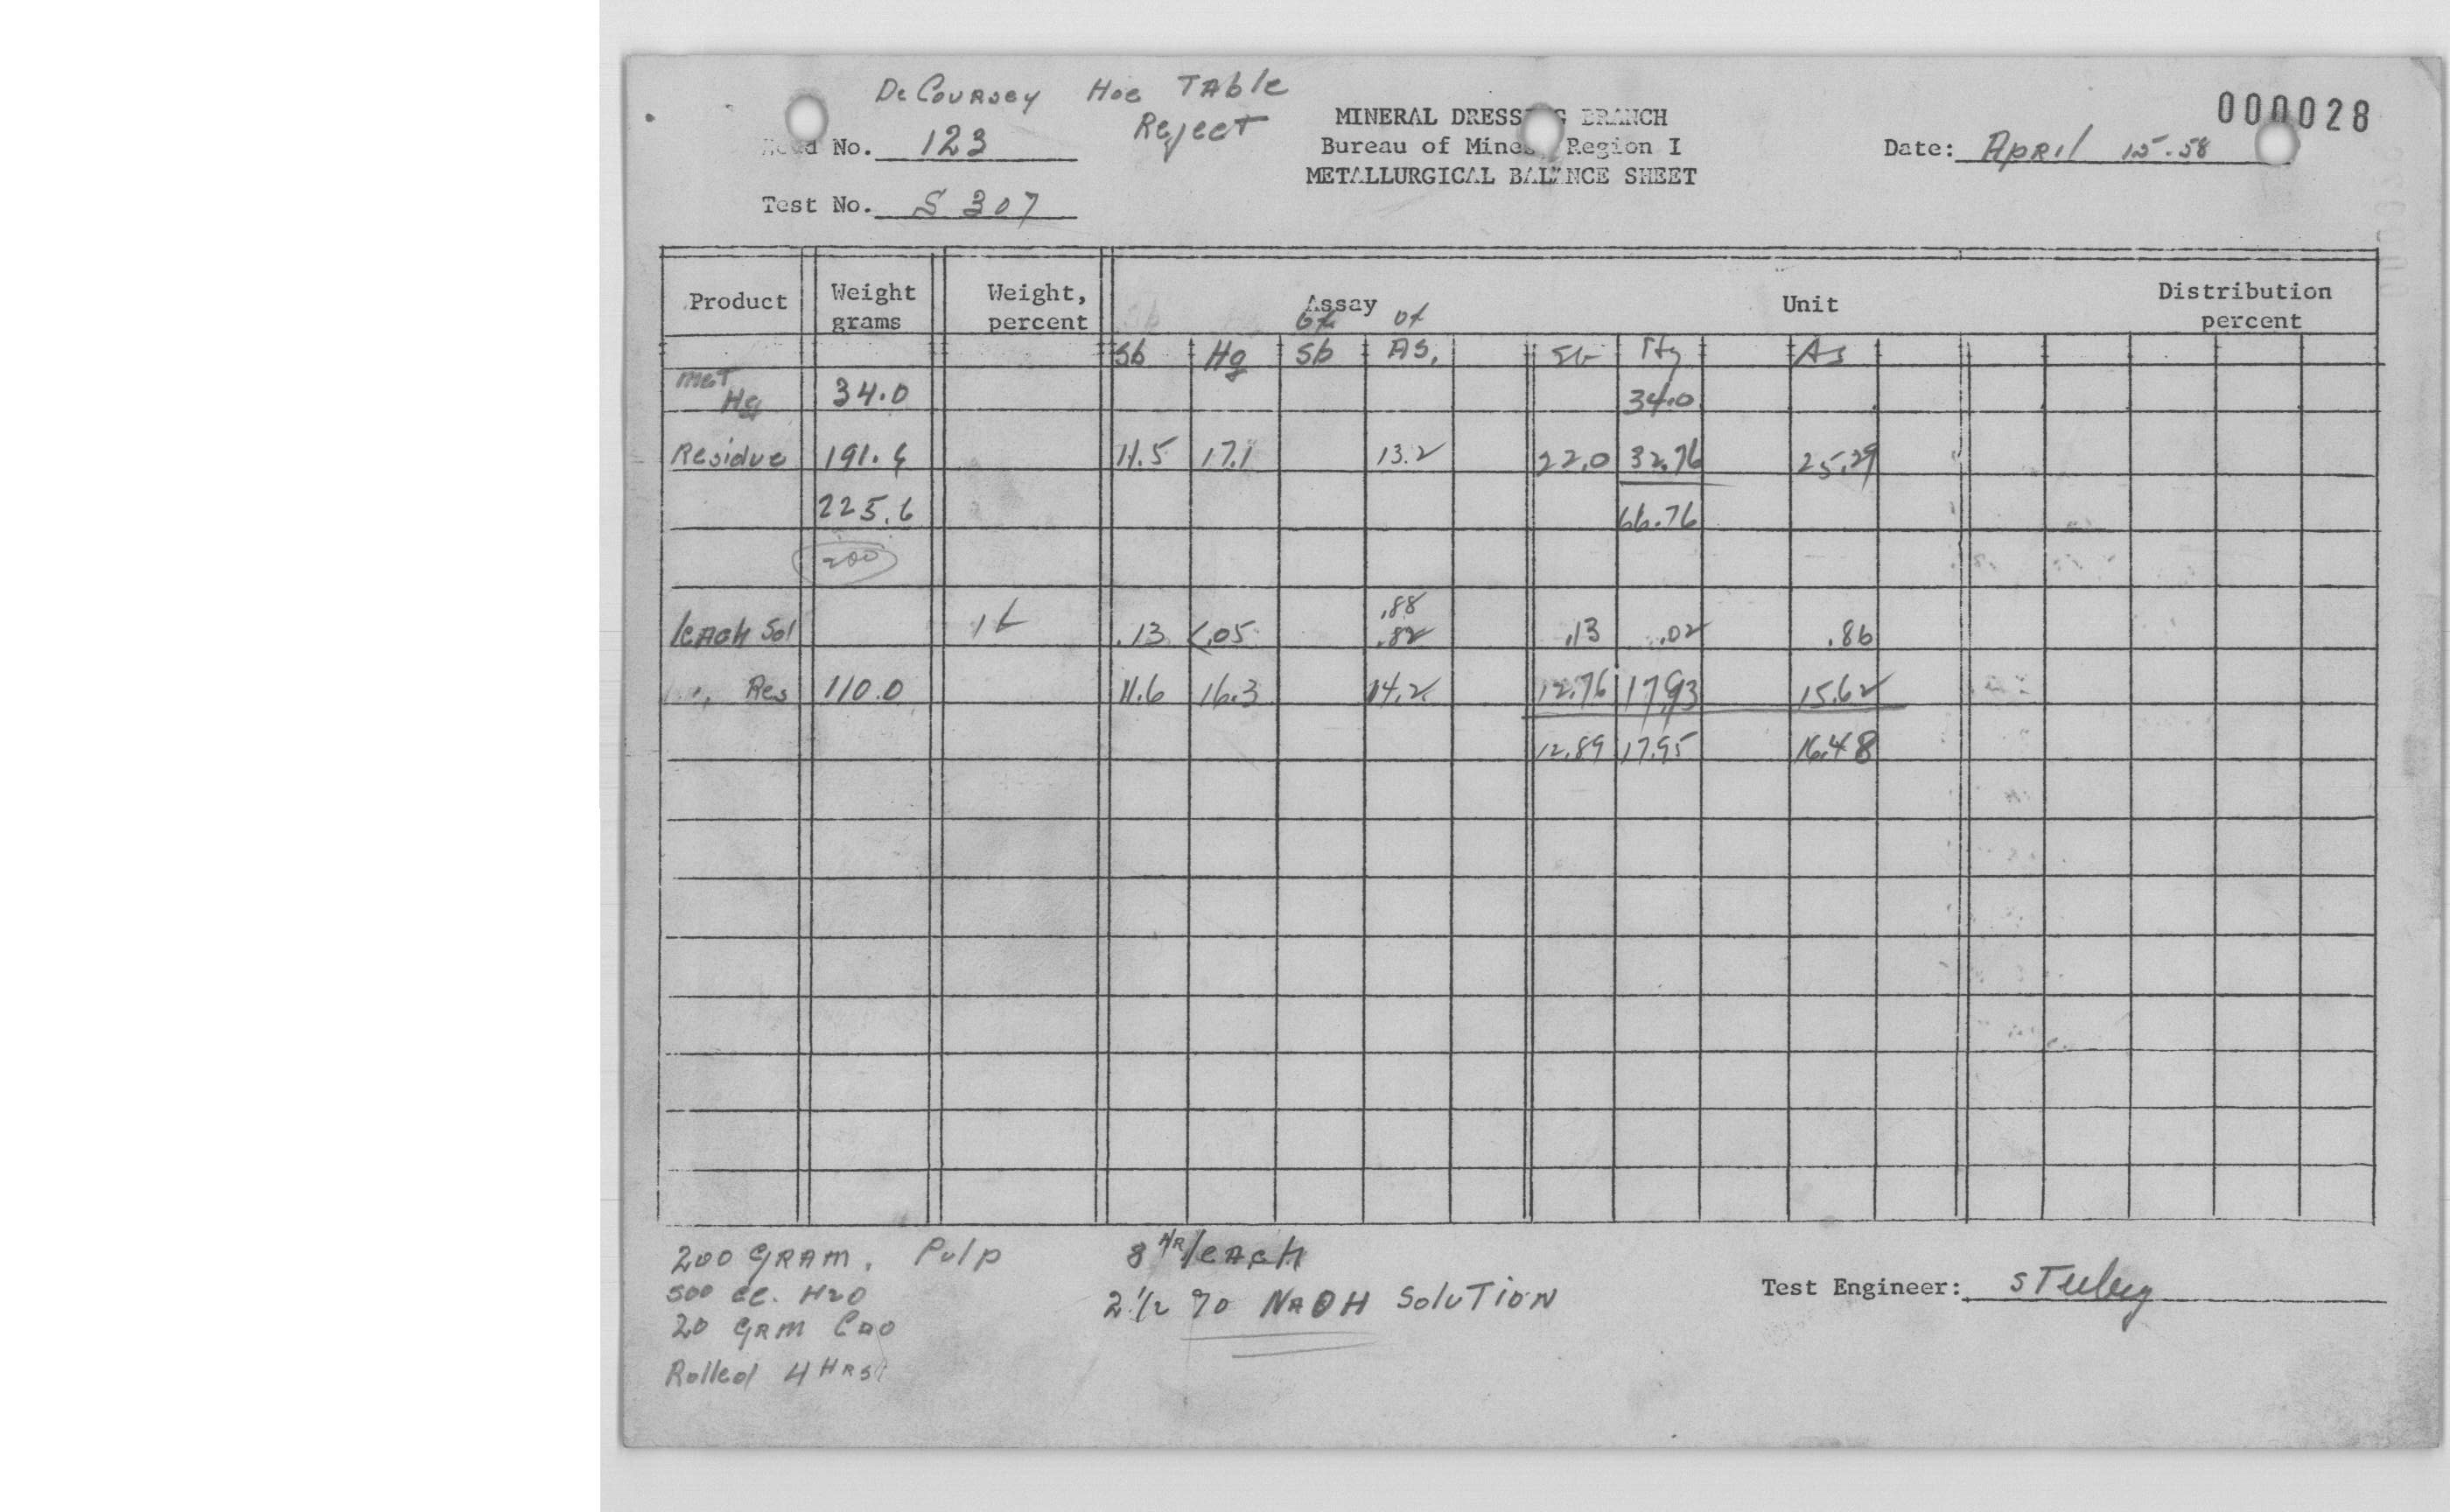 DeCoursey Hoe Table
Reject
000028
MINERAL DRESSING BRANCH
Bureau of Mines, Region I
METALLURGICAL BALANCE SHEET
Head No. 123
Date: April 15-58
Test No. S 307
Product Weight grams Weight, percent Assay Unit Distribution percent
Sb Hg Sb As. Sb Hg As
met Hg 34.0 34.0
Residue 191.6 11.5 17.1 13.2 22.0 32.76 25.29
225.6 66.76
200
.88
leach Sol 1 L .13 <.05 .82 .13 .02 .86
" Res 110.0 11.6 16.3 14.2 12.76 17.93 15.62
12.89 17.95 16.48
200 GRAM. Pulp 8 HR leach
500 cc. H2O
2 1/2 % NaOH Solution
20 GRM CaO
Rolled 4 HRS.
Test Engineer: